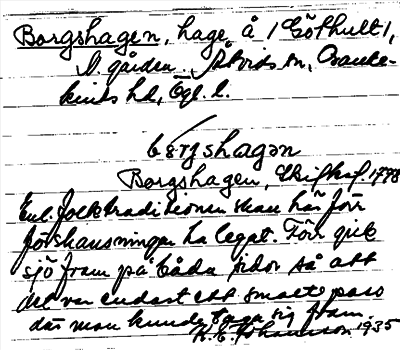 Borgshagen, hage å /Göthult/,
N. gården. Åtvids sn, Banke-
kinds hd, Ögl. l.
bǫrgshagən
Borgshagen, Skifteaf. 1798
Enl. folktraditionen skau här förr
förskansningar ha legat. Förr gick
sjö fram på båda sidor så att
det var endast ett smalt pass
där man kunde taga sig fram.
K. E. Johansson 1935